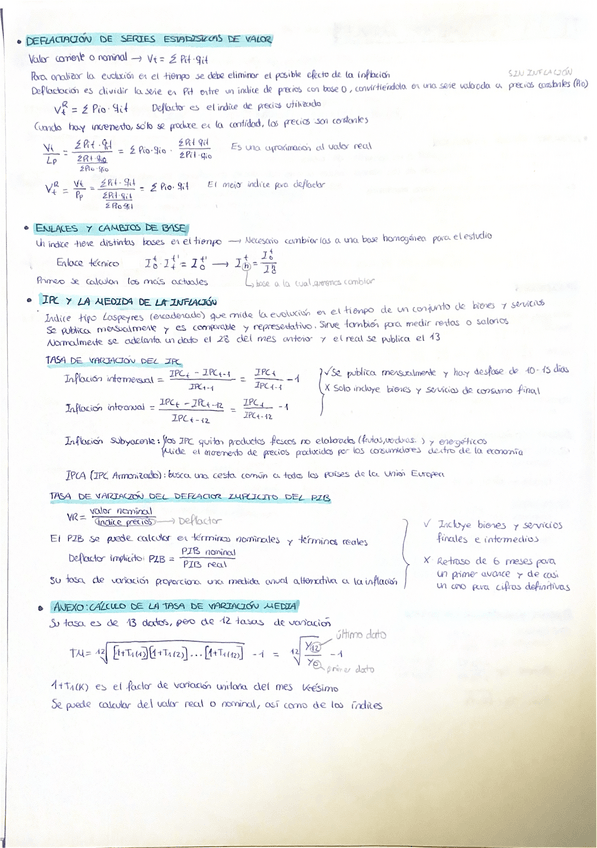 • DEFLACTACIÓN DE SERIES ESTADÍSTICAS DE VALOR
Valor corriente o nominal → Vt = Σ Pit·qit
Para analizar la evolución en el tiempo se debe eliminar el posible efecto de la inflación
SIN INFLACIÓN
Deflactación es dividir la serie en Pit entre un índice de precios con base 0, convirtiéndola en una serie valorada a precios constantes (Pio)
V_t^R = Σ Pio·qit   Deflactor es el índice de precios utilizado
Cuando hay incremento, sólo se produce en la cantidad, los precios son constantes
Vt/Lp = Σ Pit·qit / (Σ Pit·qio / Σ Pio·qio) = Σ Pio·qio · Σ Pit qit / Σ Pit·qio   Es una aproximación al valor real
V_t^R = Vt/Pp = Σ Pit·qit / (Σ Pit·qit / Σ Pio·qit) = Σ Pio·qit   El mejor índice para deflactar
• ENLACES Y CAMBIOS DE BASE
Un índice tiene distintas bases en el tiempo → Necesario cambiarlas a una base homogénea para el estudio
Primero se calculan los más actuales
→ base a la cual queremos cambiar
• IPC Y LA MEDIDA DE LA INFLACIÓN
Índice tipo Laspeyres (encadenado) que mide la evolución en el tiempo de un conjunto de bienes y servicios
Se publica mensualmente y es comparable y representativo. Sirve también para medir rentas o salarios
Normalmente se adelanta un dato el 28 del mes anterior y el real se publica el 13
TASA DE VARIACIÓN DEL IPC
Inflación intermensual = (IPCt − IPCt-1) / IPCt-1 = IPCt / IPCt-1 − 1
✓ Se publica mensualmente y hay desfase de 10-15 días
X Solo incluye bienes y servicios de consumo final
Inflación interanual = (IPCt − IPCt-12) / IPCt-12 = IPCt / IPCt-12 − 1
Inflación Subyacente: Al IPC quitan productos frescos no elaborados (frutas, verduras..) y energéticos
Mide el incremento de precios producidos por los consumidores dentro de la economía
IPCA (IPC Armonizado): busca una cesta común a todos los países de la Unión Europea
TASA DE VARIACIÓN DEL DEFLACTOR IMPLÍCITO DEL PIB
VR = valor nominal / índice precios → Deflactor
El PIB se puede calcular en términos nominales y términos reales
Deflactor implícito: PIB = PIB nominal / PIB real
Su tasa de variación proporciona una medida anual alternativa a la inflación
✓ Incluye bienes y servicios
finales e intermedios
X Retraso de 6 meses para
un primer avance y de casi
un año para cifras definitivas
• ANEXO: CÁLCULO DE LA TASA DE VARIACIÓN MEDIA
Su tasa es de 13 datos, pero de 12 tasas de variación
último dato
TM = 12√([1+T1(1)][1+T1(2)]...[1+T1(12)]) − 1 = 12√(Y12/Y0) − 1
primer dato
1+T1(K) es el factor de variación unitaria del mes k-ésimo
Se puede calcular del valor real o nominal, así como de los índices